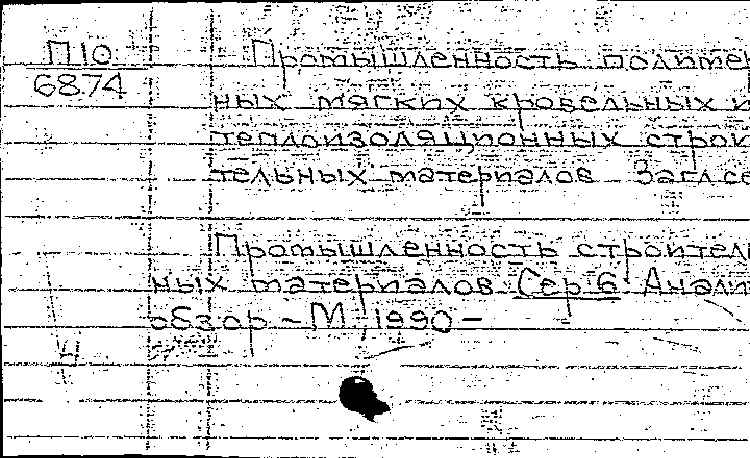 П10
6874
Промышленность полимер
ных мягких кровельных и
теплоизоляционных строи
тельных материалов Загл се
Промышленность строитель
ных материалов. Сер 6 Анали
обзор – М, 1990 –
4